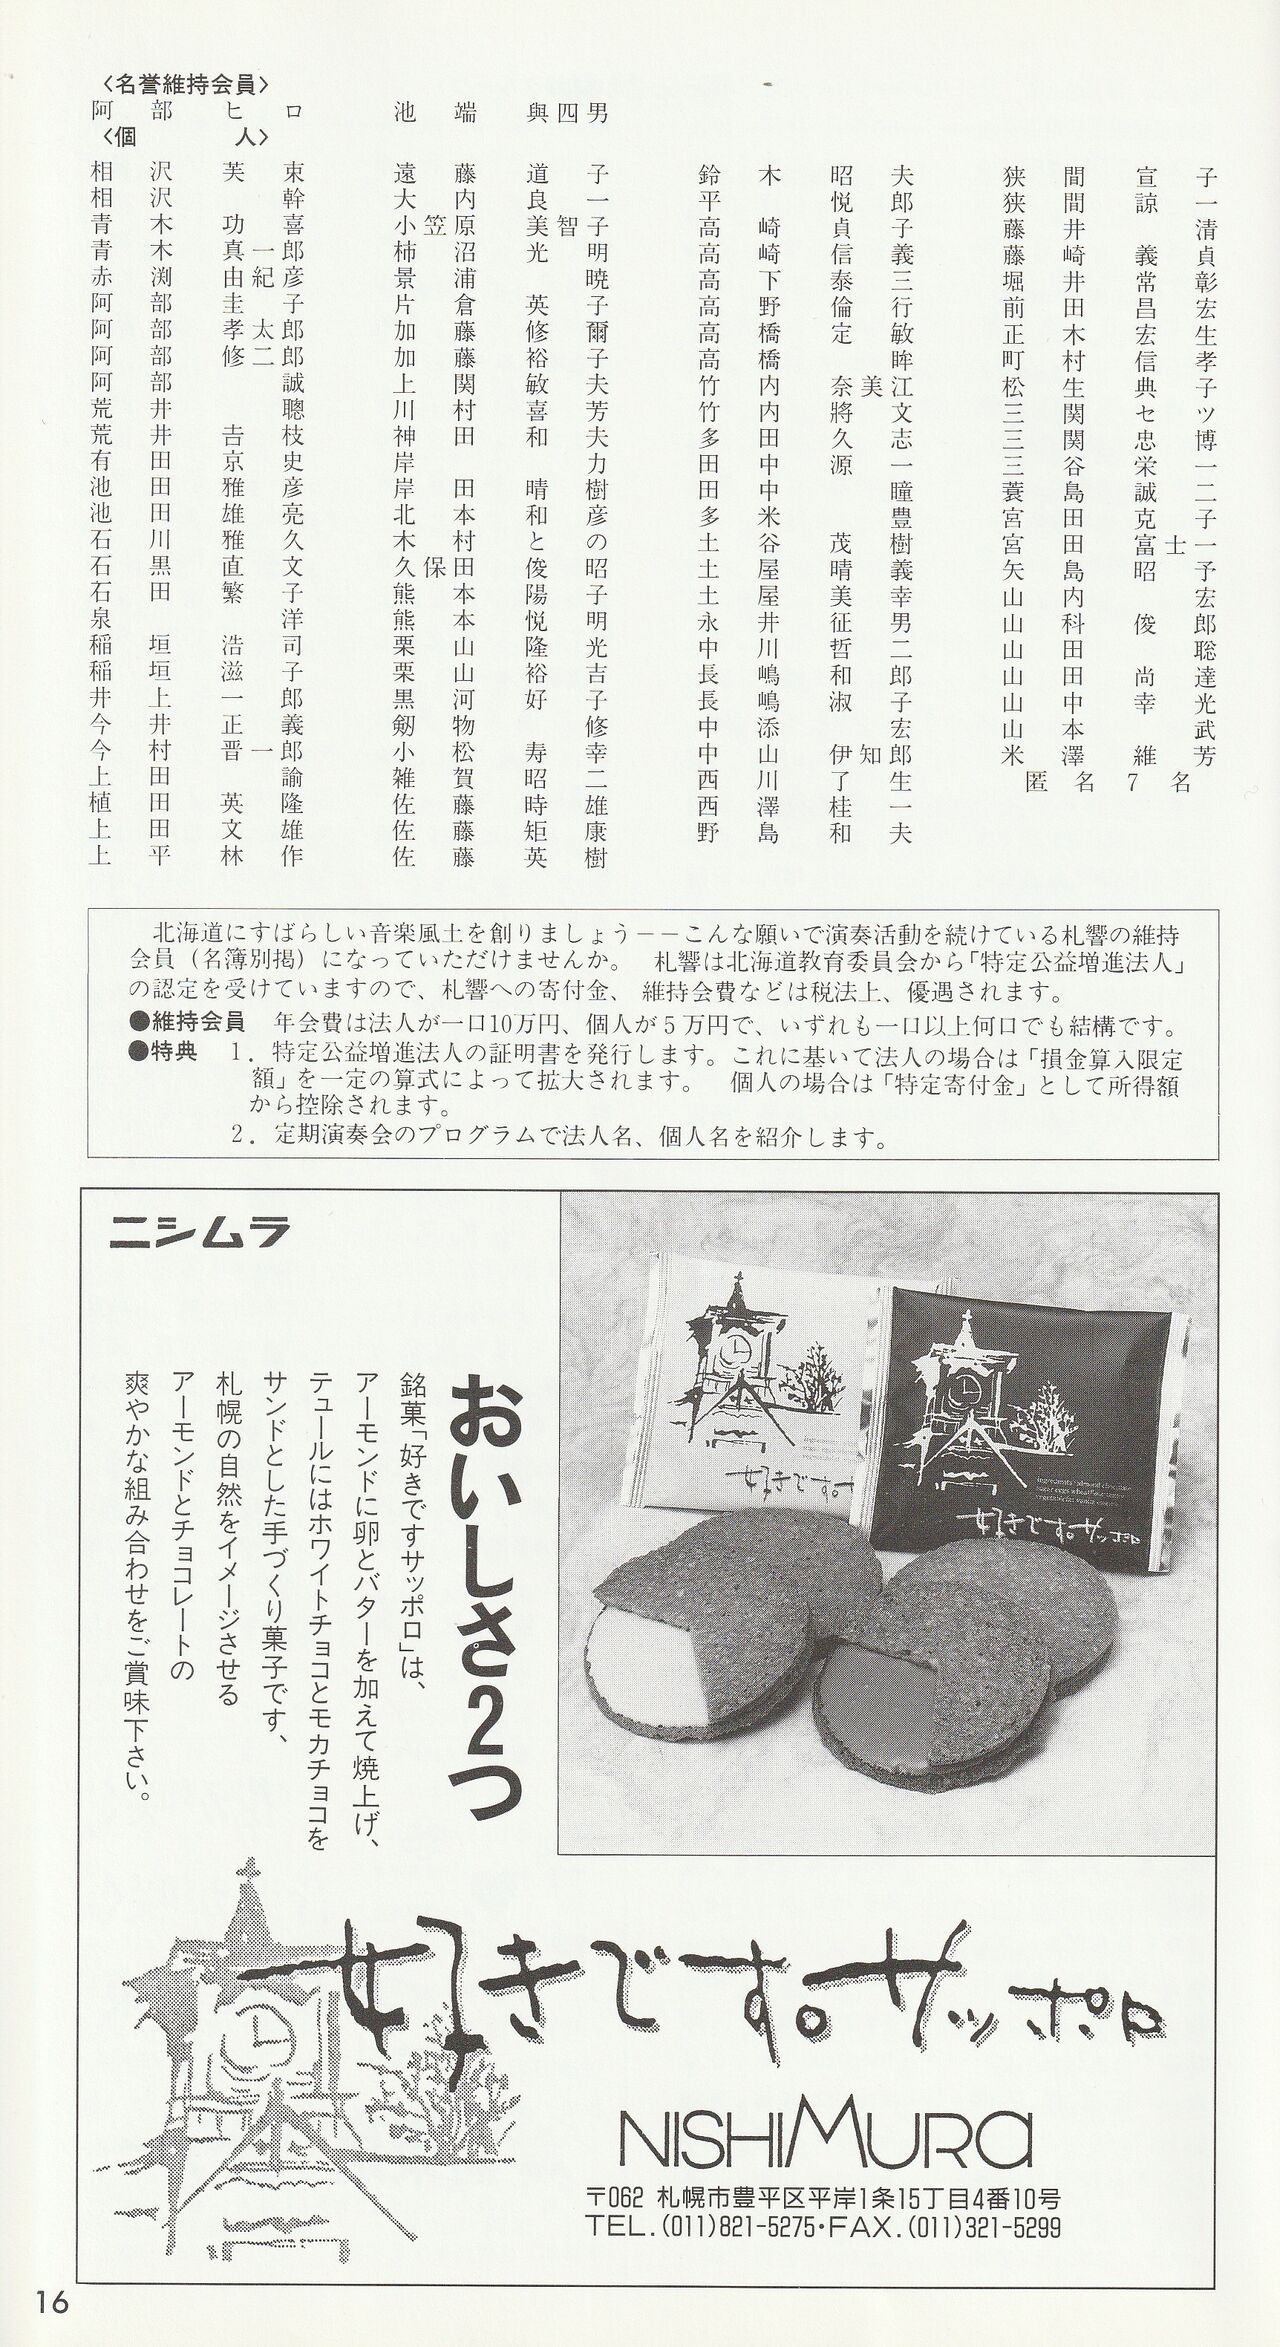 〈名誉維持会員〉
阿部ヒロ　池端與四男
〈個人〉
相沢芙束
相沢幹
青木功喜
青木真一郎
赤渕由紀彦
阿部圭子
阿部孝太郎
阿部修二郎
阿部誠
荒井聰
荒井吉枝
有田京史
池田雅彦
池田雄亮
石川雅久
石黒直文
石田繁子
泉洋
稲垣浩司
稲垣滋子
井上一郎
今井正義
今村晋一郎
上田諭
植田英隆
上田文雄
上平林作
遠藤道子
大内良一
小笠原美智子
柿沼光明
景浦暁
片倉英子
加藤修爾
加藤裕子
上関敏夫
川村喜芳
神田和夫
岸力
岸田晴樹
北本和彦
木村との
久保田俊昭
熊本陽子
熊本悦明
栗山隆光
栗山裕吉
黒河好子
剱物修
小松寿幸
雑賀昭二
佐藤時雄
佐藤矩康
佐藤英樹
鈴木昭夫
平悦郎
高崎貞子
高崎信義
高下泰三
高野倫行
高橋定敏
高橋眸
竹内奈美江
竹内將文
多田久志
田中源一
田中瞳
多米豊
土谷茂樹
土屋晴義
土屋美幸
永井征男
中川哲二
長嶋和郎
長嶋淑子
中添宏
中山伊知郎
西川了生
西澤桂一
野島和夫
狭間宣子
狭間諒一
藤井清
藤崎義貞
堀井常彰
前田昌宏
正木宏生
町村信孝
松生典子
三関セツ
三関忠博
三谷栄一
蓑島誠二
宮田克子
宮田富士一
矢島昭予
山内宏
山科俊郎
山田聡
山田尚達
山中幸光
山本武
米澤維芳
匿名7名
北海道にすばらしい音楽風土を創りましょう――こんな願いで演奏活動を続けている札響の維持
会員（名簿別掲）になっていただけませんか。 札響は北海道教育委員会から「特定公益増進法人」
の認定を受けていますので、札響への寄付金、維持会費などは税法上、優遇されます。
●維持会員　年会費は法人が一口10万円、個人が5万円で、いずれも一口以上何口でも結構です。
●特典　1．特定公益増進法人の証明書を発行します。これに基いて法人の場合は「損金算入限定
額」を一定の算式によって拡大されます。 個人の場合は「特定寄付金」として所得額
から控除されます。
2．定期演奏会のプログラムで法人名、個人名を紹介します。
ニシムラ
おいしさ2つ
銘菓「好きですサッポロ」は、
アーモンドに卵とバターを加えて焼上げ、
テュールにはホワイトチョコとモカチョコを
サンドとした手づくり菓子です、
札幌の自然をイメージさせる
アーモンドとチョコレートの
爽やかな組み合わせをご賞味下さい。
好きです。サッポ
好きです。サッポロ
好きです。サッポロ
NISHIMURA
〒062 札幌市豊平区平岸1条15丁目4番10号
TEL.(011)821-5275・FAX.(011)321-5299
16